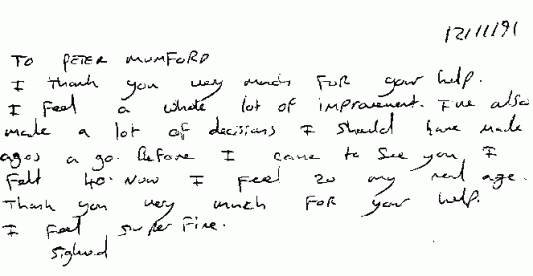 12/11/91
TO PETER MUMFORD
I Thank you very much FOR your help.
I Feel a whole lot of improvement. I've also
made a lot of decisions I should have made
ages a go. Before I came to see you I
Felt 40. Now I Feel 20 my real age.
Thank you very much FOR your help.
I Feel super Fine.
Signed